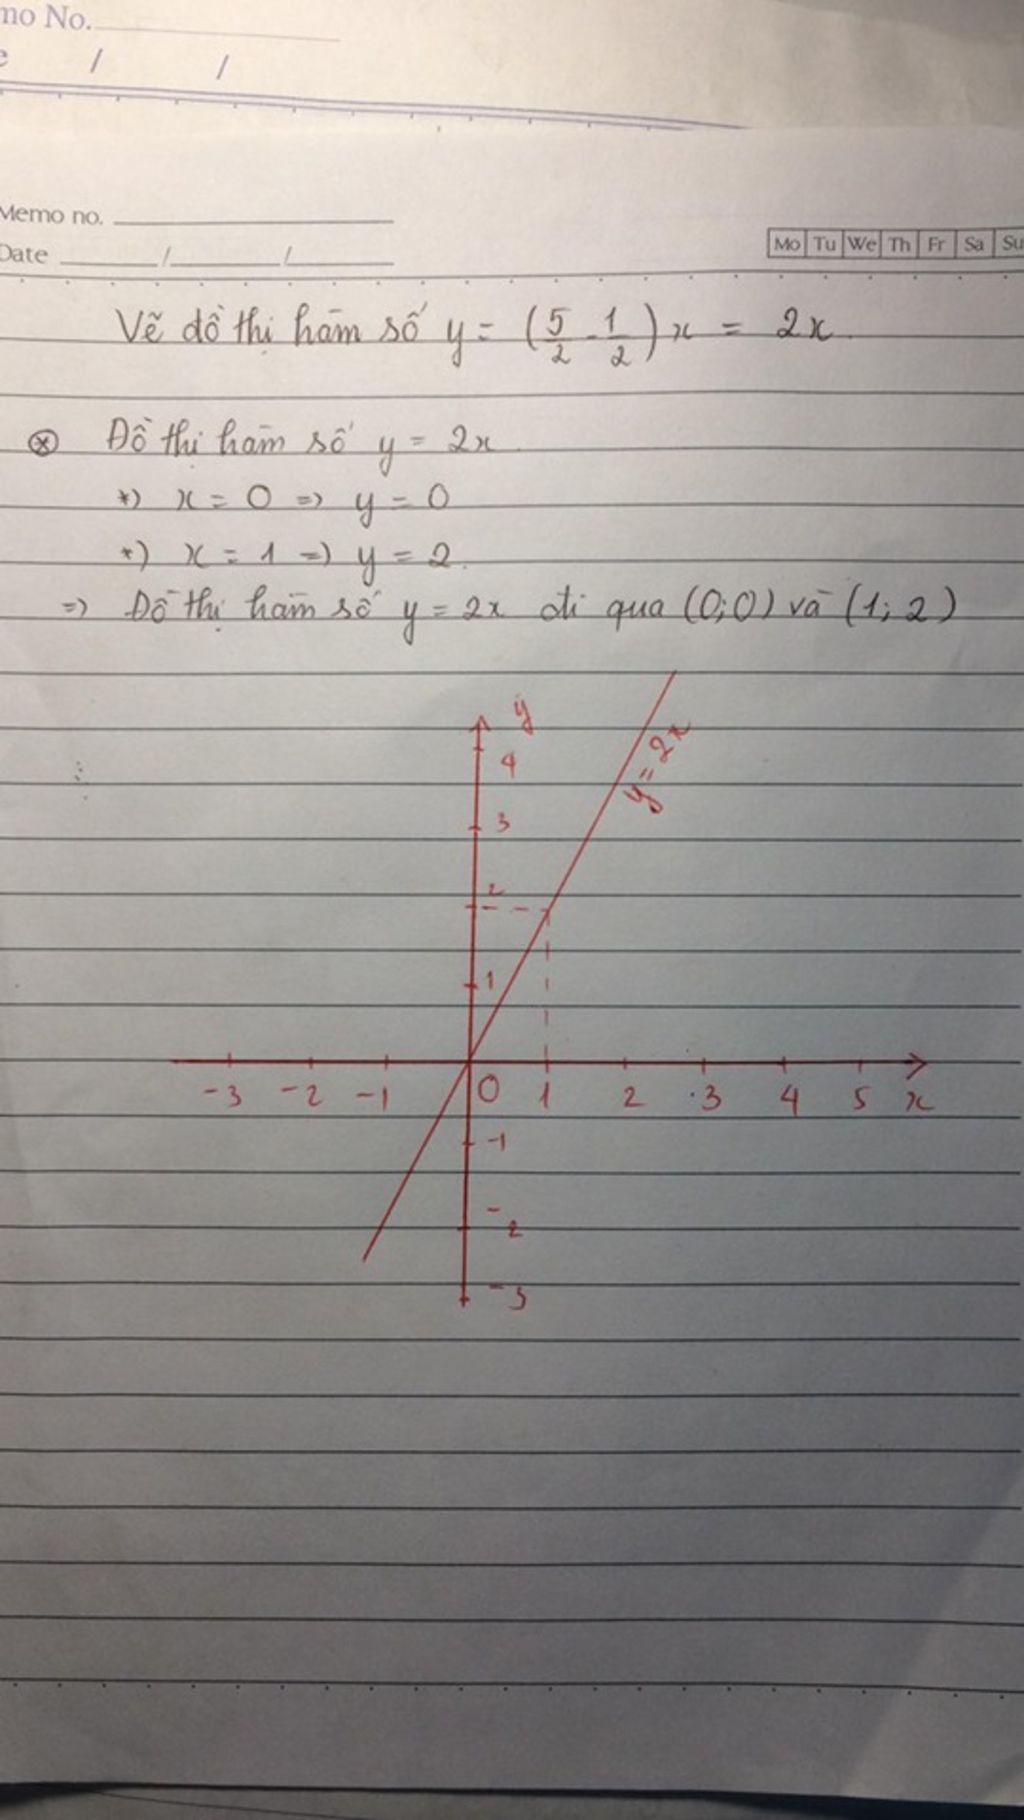 mo No.
e / /
Memo no.
Date / /
Mo Tu We Th Fr Sa Su
Vẽ đồ thị hàm số y = (5/2 - 1/2)x = 2x
⊗ Đồ thị hàm số y = 2x
*) x = 0 => y = 0
*) x = 1 => y = 2.
=> Đồ thị hàm số y = 2x đi qua (0;0) và (1; 2)
y
4
y = 2x
3
2
1
-3 -2 -1 0 1 2 3 4 5 x
-1
-2
-3